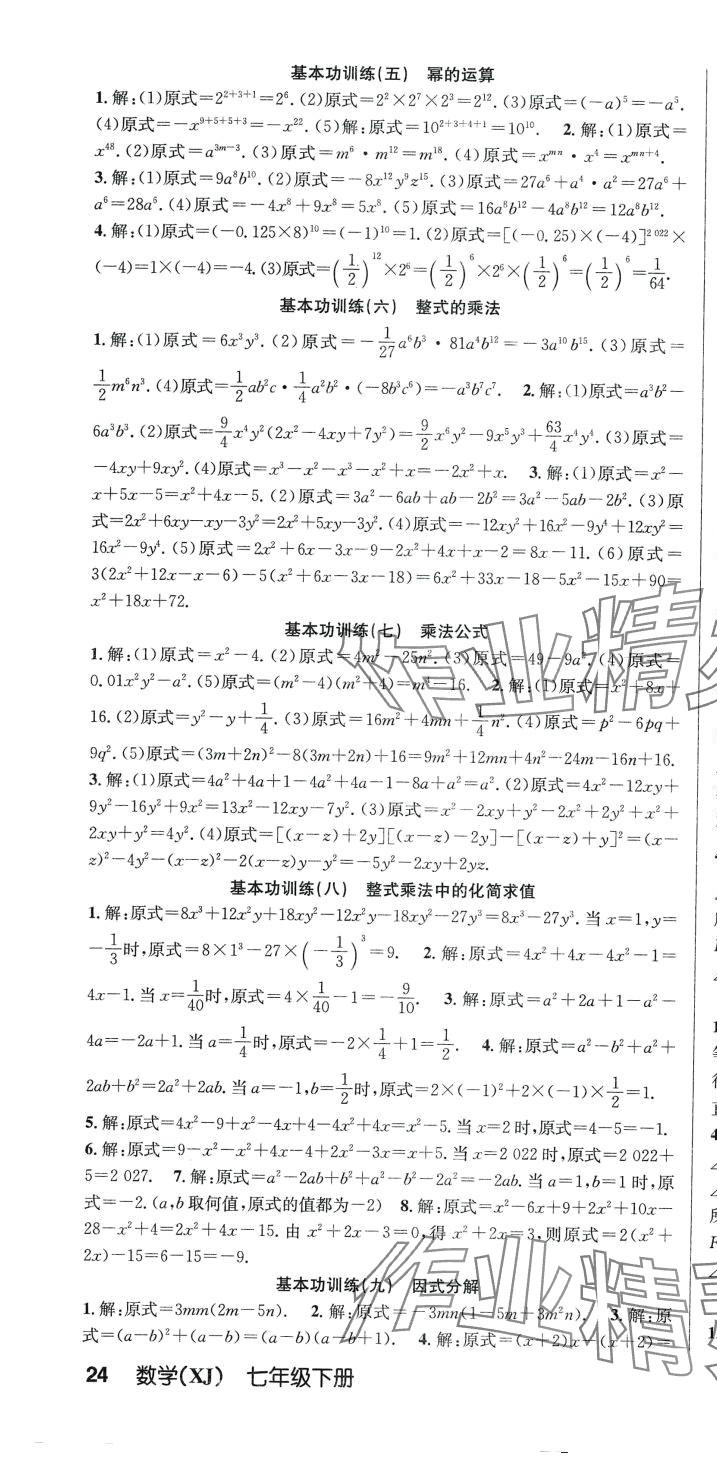 基本功训练(五) 幂的运算
1.解:(1)原式=2²⁺³⁺¹=2⁶.(2)原式=2²×2⁷×2³=2¹².(3)原式=(-a)⁵=-a⁵.
(4)原式=-x⁹⁺⁵⁺⁵⁺³=-x²².(5)解:原式=10²⁺³⁺⁴⁺¹=10¹⁰. 2.解:(1)原式=
x⁴⁸.(2)原式=a³ᵐ⁻³.(3)原式=m⁶·m¹²=m¹⁸.(4)原式=xᵐⁿ·x⁴=xᵐⁿ⁺⁴.
3.解:(1)原式=9a⁸b¹⁰.(2)原式=-8x¹²y⁹z¹⁵.(3)原式=27a⁶+a⁴·a²=27a⁶+
a⁶=28a⁶.(4)原式=-4x⁸+9x⁸=5x⁸.(5)原式=16a⁸b¹²-4a⁸b¹²=12a⁸b¹².
4.解:(1)原式=(-0.125×8)¹⁰=(-1)¹⁰=1.(2)原式=[(-0.25)×(-4)]²⁰²²×
(-4)=1×(-4)=-4.(3)原式=(1/2)¹²×2⁶=(1/2)⁶×2⁶×(1/2)⁶=(1/2)⁶=1/64.
基本功训练(六) 整式的乘法
1.解:(1)原式=6x³y³.(2)原式=-1/27a⁶b³·81a⁴b¹²=-3a¹⁰b¹⁵.(3)原式=
1/2m⁶n³.(4)原式=1/2ab²c·1/4a²b²·(-8b³c⁶)=-a³b⁷c⁷. 2.解:(1)原式=a³b²-
6a³b³.(2)原式=9/4x⁴y²(2x²-4xy+7y²)=9/2x⁶y²-9x⁵y³+63/4x⁴y⁴.(3)原式=
-4xy+9xy².(4)原式=x³-x²-x³-x²+x=-2x²+x. 3.解:(1)原式=x²-
x+5x-5=x²+4x-5.(2)原式=3a²-6ab+ab-2b²=3a²-5ab-2b².(3)原
式=2x²+6xy-xy-3y²=2x²+5xy-3y².(4)原式=-12xy²+16x²-9y⁴+12xy²=
16x²-9y⁴.(5)原式=2x²+6x-3x-9-2x²+4x+x-2=8x-11.(6)原式=
3(2x²+12x-x-6)-5(x²+6x-3x-18)=6x²+33x-18-5x²-15x+90=
x²+18x+72.
基本功训练(七) 乘法公式
1.解:(1)原式=x²-4.(2)原式=4m²-25n².(3)原式=49-9a².(4)原式=
0.01x²y²-a².(5)原式=(m²-4)(m²+4)=m⁴-16. 2.解:(1)原式=x²+8x+
16.(2)原式=y²-y+1/4.(3)原式=16m²+4mn+1/4n².(4)原式=p²-6pq+
9q².(5)原式=(3m+2n)²-8(3m+2n)+16=9m²+12mn+4n²-24m-16n+16.
3.解:(1)原式=4a²+4a+1-4a²+4a-1-8a+a²=a².(2)原式=4x²-12xy+
9y²-16y²+9x²=13x²-12xy-7y².(3)原式=x²-2xy+y²-2x²+2y²+x²+
2xy+y²=4y².(4)原式=[(x-z)+2y][(x-z)-2y]-[(x-z)+y]²=(x-
z)²-4y²-(x-z)²-2(x-z)y-y²=-5y²-2xy+2yz.
基本功训练(八) 整式乘法中的化简求值
1.解:原式=8x³+12x²y+18xy²-12x²y-18xy²-27y³=8x³-27y³.当x=1,y=
-1/3时,原式=8×1³-27×(-1/3)³=9. 2.解:原式=4x²+4x-4x²-1=
4x-1.当x=1/40时,原式=4×1/40-1=-9/10. 3.解:原式=a²+2a+1-a²-
4a=-2a+1.当a=1/4时,原式=-2×1/4+1=1/2. 4.解:原式=a²-b²+a²+
2ab+b²=2a²+2ab.当a=-1,b=1/2时,原式=2×(-1)²+2×(-1)×1/2=1.
5.解:原式=4x²-9+x²-4x+4-4x²+4x=x²-5.当x=2时,原式=4-5=-1.
6.解:原式=9-x²-x²+4x-4+2x²-3x=x+5.当x=2 022时,原式=2 022+
5=2 027. 7.解:原式=a²-2ab+b²+a²-b²-2a²+2ab-2=-2.当a=1,b=1时,原
式=-2.(a,b取何值,原式的值都为-2) 8.解:原式=x²-6x+9+2x²+10x-
28-x²+4=2x²+4x-15.由x²+2x-3=0,得x²+2x=3,则原式=2(x²+
2x)-15=6-15=-9.
基本功训练(九) 因式分解
1.解:原式=3mm(2m-5n). 2.解:原式=-3mn(1-5m+3m²n). 3.解:原
式=(a-b)²+(a-b)=(a-b)(a-b+1). 4.解:原式=(x+2)x-(x+2)=
24 数学(XJ) 七年级下册